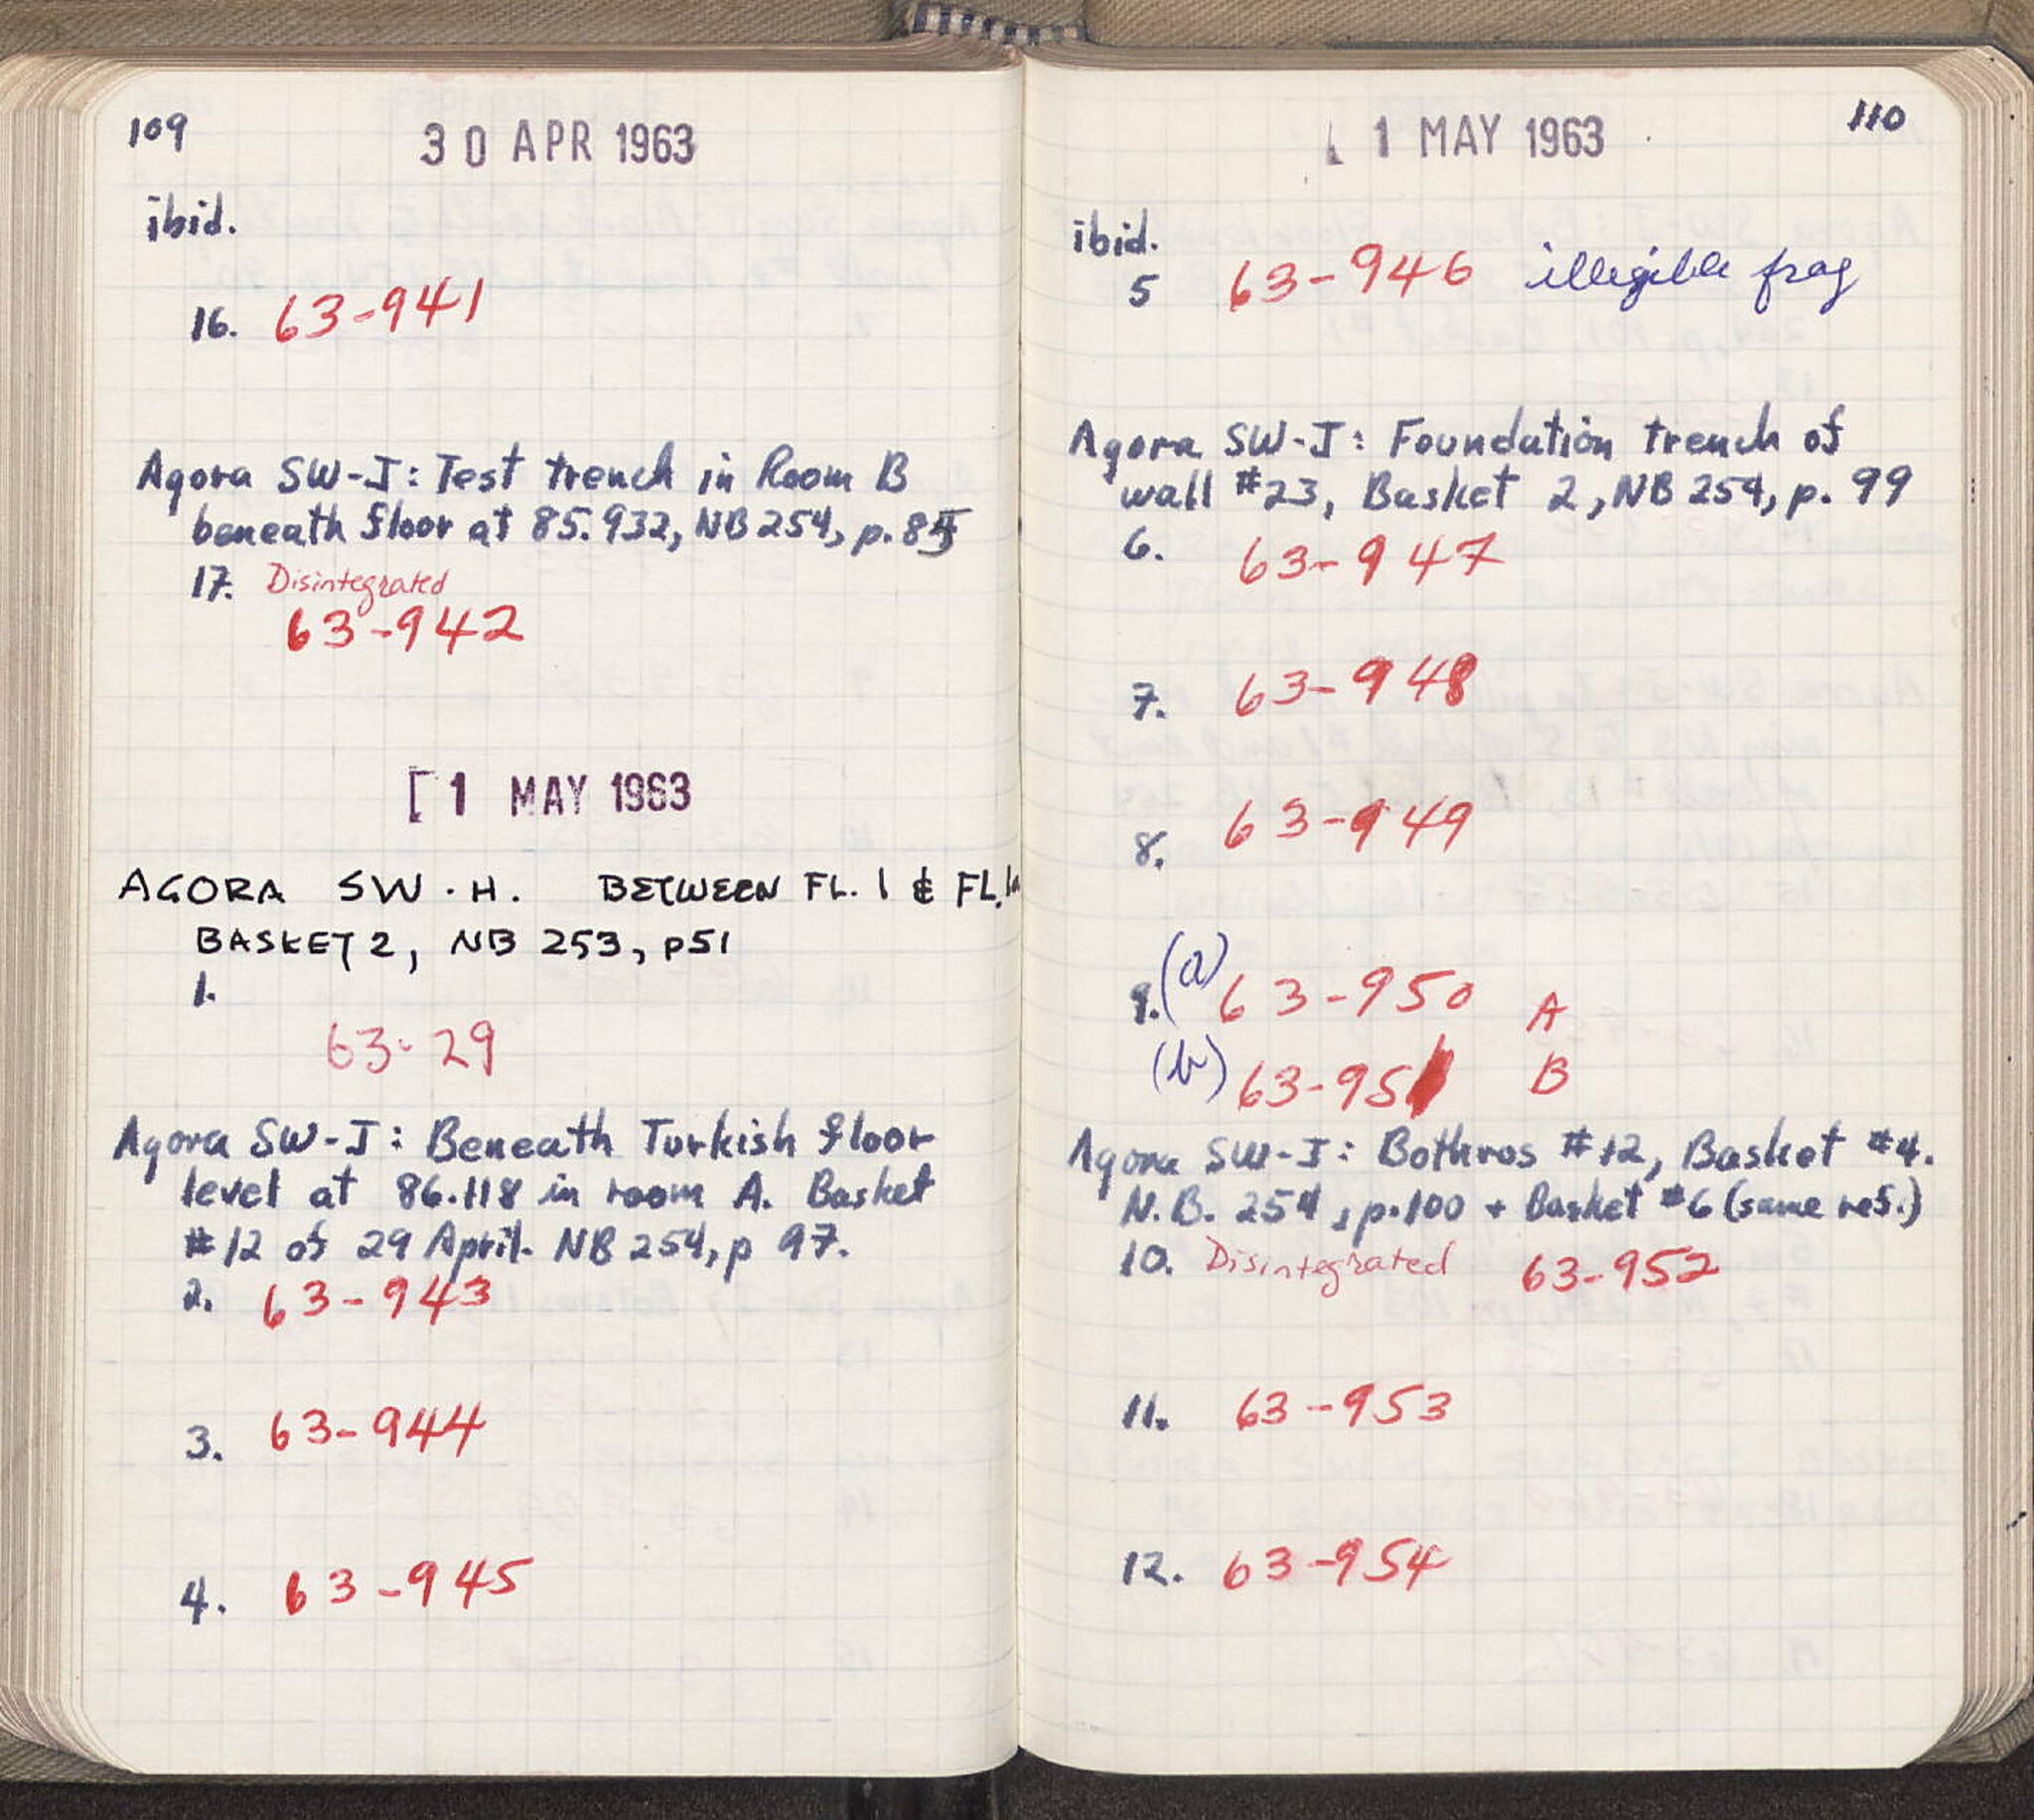 109
30 APR 1963
ibid.
16. 63-941
Agora SW-J: Test trench in Room B
beneath floor at 85.932, NB 254, p. 85
17. Disintegrated
63-942
[1 MAY 1963
AGORA SW-H. BETWEEN FL. 1 & FL. 1a
BASKET 2, NB 253, p51
1.
63-29
Agora SW-J: Beneath Turkish floor
level at 86.118 in room A. Basket
#12 of 29 April. NB 254, p 97.
2. 63-943
3. 63-944
4. 63-945
1 MAY 1963
110
ibid.
5 63-946 illegible frag
Agora SW-J: Foundation trench of
wall #23, Basket 2, NB 254, p. 99
6. 63-947
7. 63-948
8. 63-949
9. (a) 63-950 A
(b) 63-951 B
Agora SW-J: Bothros #12, Basket #4.
N.B. 254, p.100 + Basket #6 (same ref.)
10. Disintegrated 63-952
11. 63-953
12. 63-954